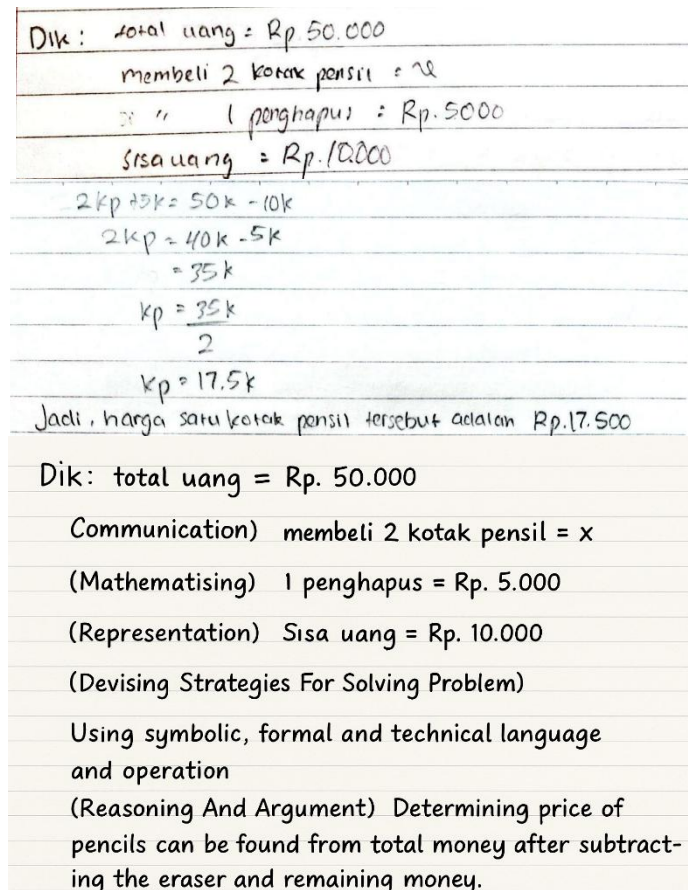 Dik : total uang = Rp. 50.000
membeli 2 kotak pensil = x
" 1 penghapus = Rp. 5000
sisa uang = Rp. 10.000
2kp + 5k = 50k - 10k
2kp = 40k - 5k
= 35k
kp = 35k
2
kp = 17.5k
Jadi, harga satu kotak pensil tersebut adalah Rp.17.500
Dik: total uang = Rp. 50.000
Communication) membeli 2 kotak pensil = x
(Mathematising) 1 penghapus = Rp. 5.000
(Representation) Sisa uang = Rp. 10.000
(Devising Strategies For Solving Problem)
Using symbolic, formal and technical language
and operation
(Reasoning And Argument) Determining price of
pencils can be found from total money after subtract-
ing the eraser and remaining money.